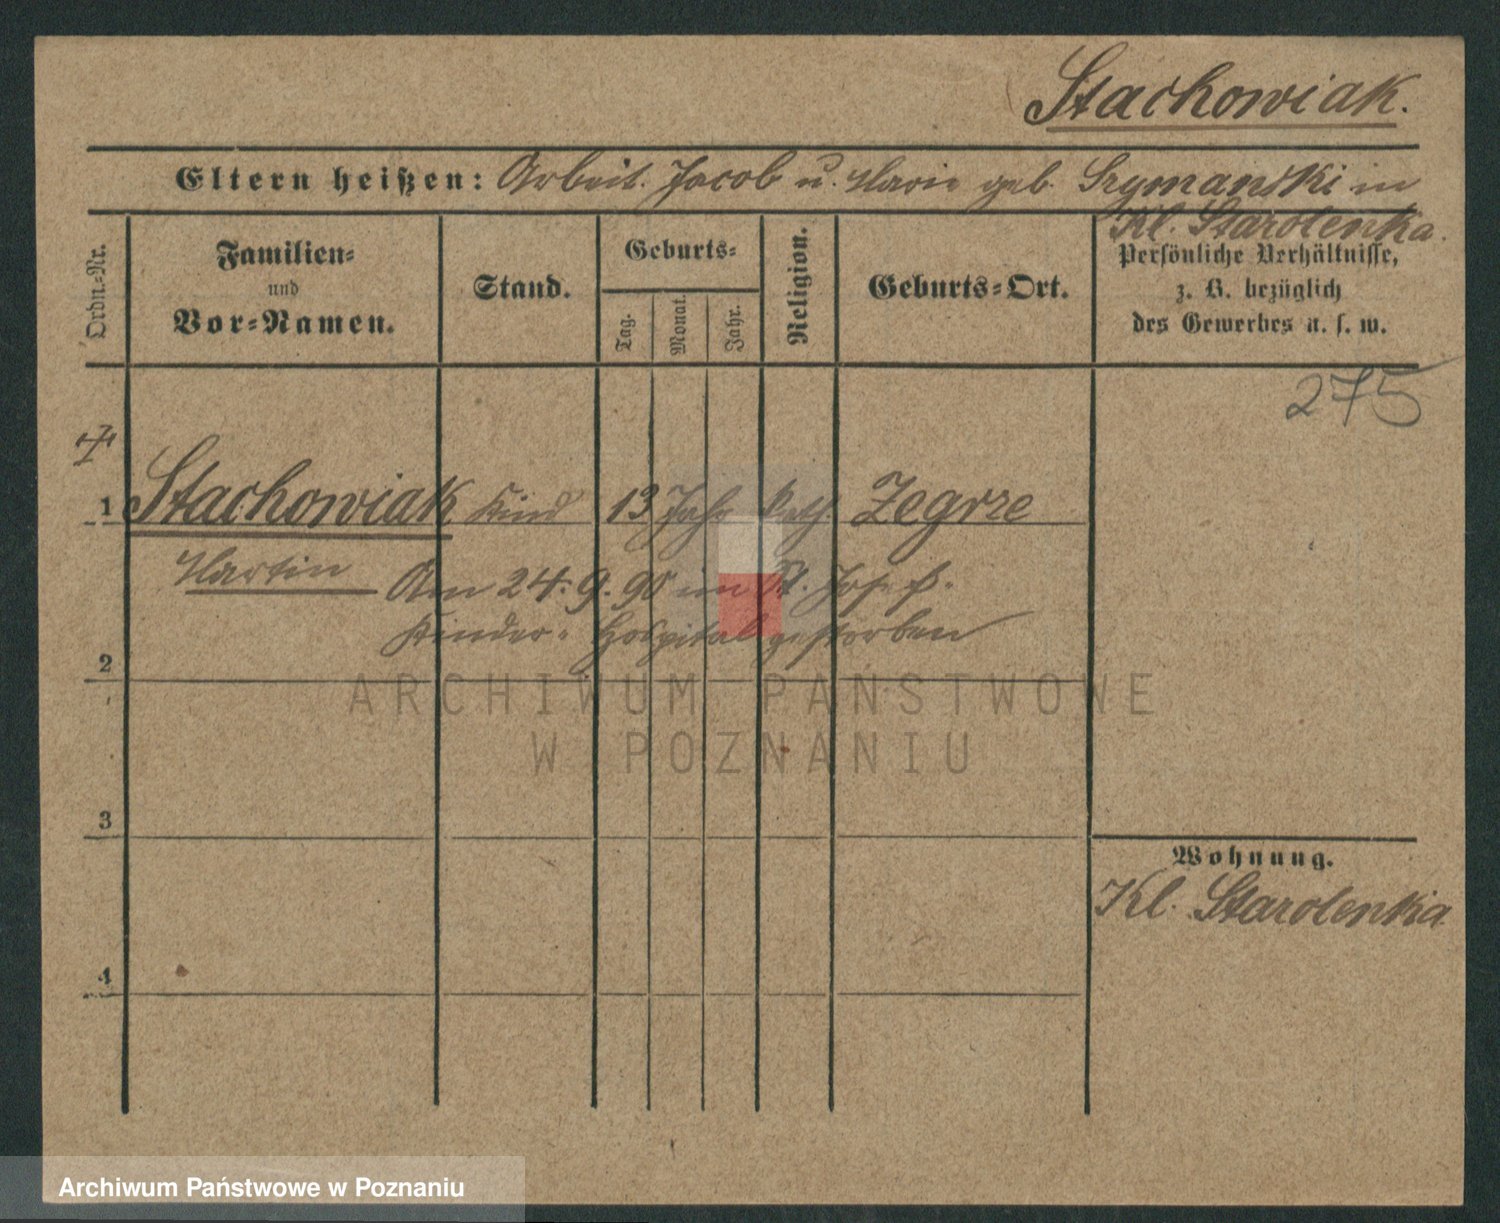 Stachowiak.
Eltern heißen: Arbeit. Jacob u. Marie geb. Szymanski in
Kl. Starolenka.
Ordn.-Nr.
Familien-
und
Vor-Namen.
Stand.
Geburts-
Tag.
Monat.
Jahr.
Religion.
Geburts-Ort.
Persönliche Verhältnisse,
z. B. bezüglich
des Gewerbes u. s. w.
275
1 Stachowiak Kind 13 Jahr kath. Zegrze
Martin Am 24.9.90 im St. Josef-
Kinder-Hospital gestorben
2
ARCHIWUM PAŃSTWOWE
W POZNANIU
3
Wohnung.
Kl. Starolenka
4
Archiwum Państwowe w Poznaniu